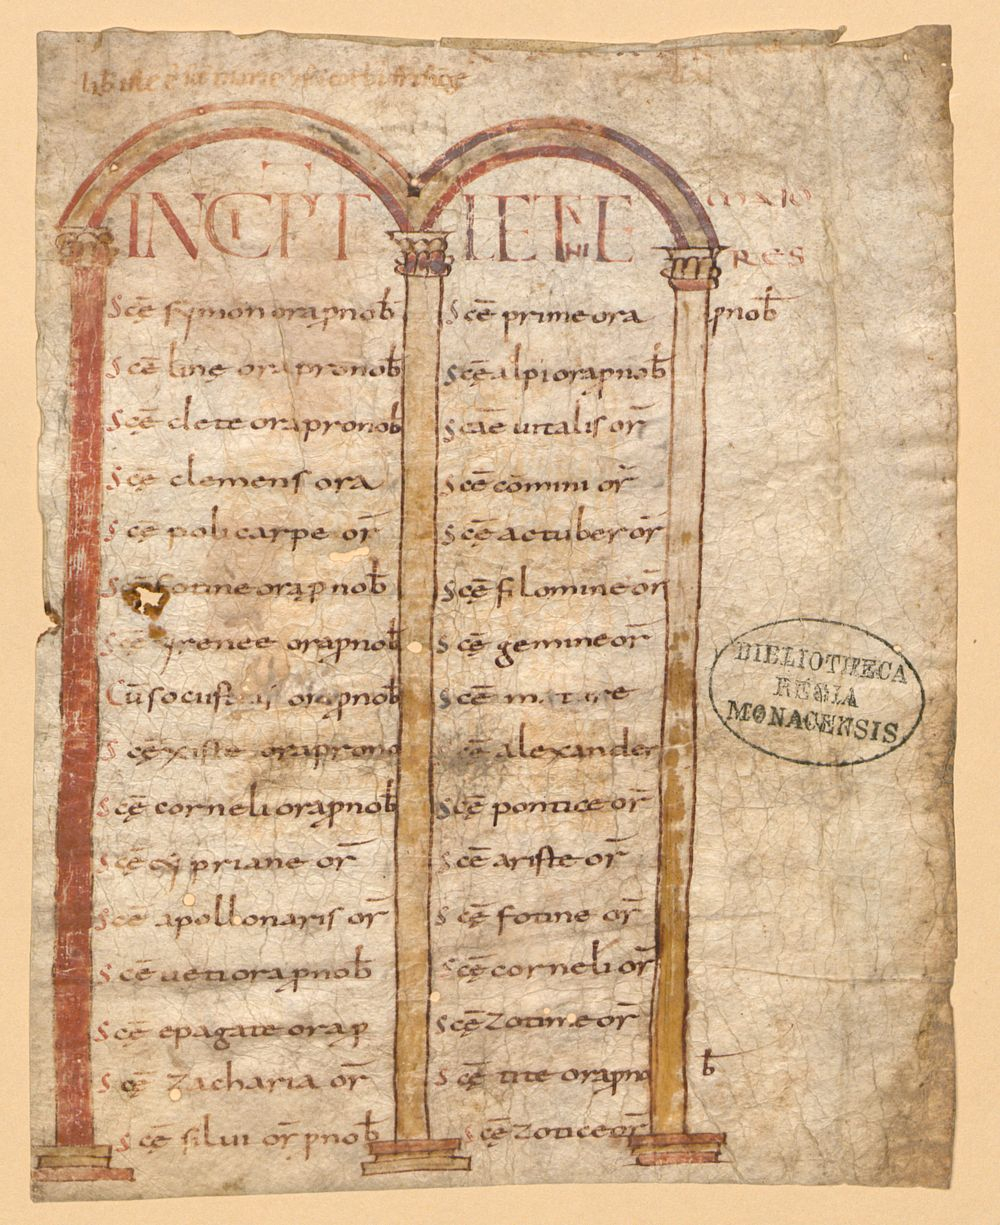 INCIPIT LETENIE
MAIO
RES
Scē symon ora pnob
Scę line ora pro nob
Scē clete ora pro nob
Scę clemens ora
Scę policarpe or
Scē fotine ora p nob
Scē yrenee ora pnob
Cū sociis tuis ora pnob
Scę xiste ora pro no
Scę corneli ora pnob
Scē cypriane or
Scē apollonaris or
Scē ueti ora pnob
Scē epagate ora p
Scę zacharia or
Scę silui or pnob
Scē prime ora pnob
Scę alpi ora pnob
Scāe uitalis or
Scę comini or
Scę actuber or
Scę filomine or
Scę gemine or
Scē mature
Scę alexander
Scę pontice or
Scē ariste or
Scę fotine or
Scę corneli or
Scę zotine or
Scę tite ora pnob
Scę zotice or
BIBLIOTHECA
REGIA
MONACENSIS